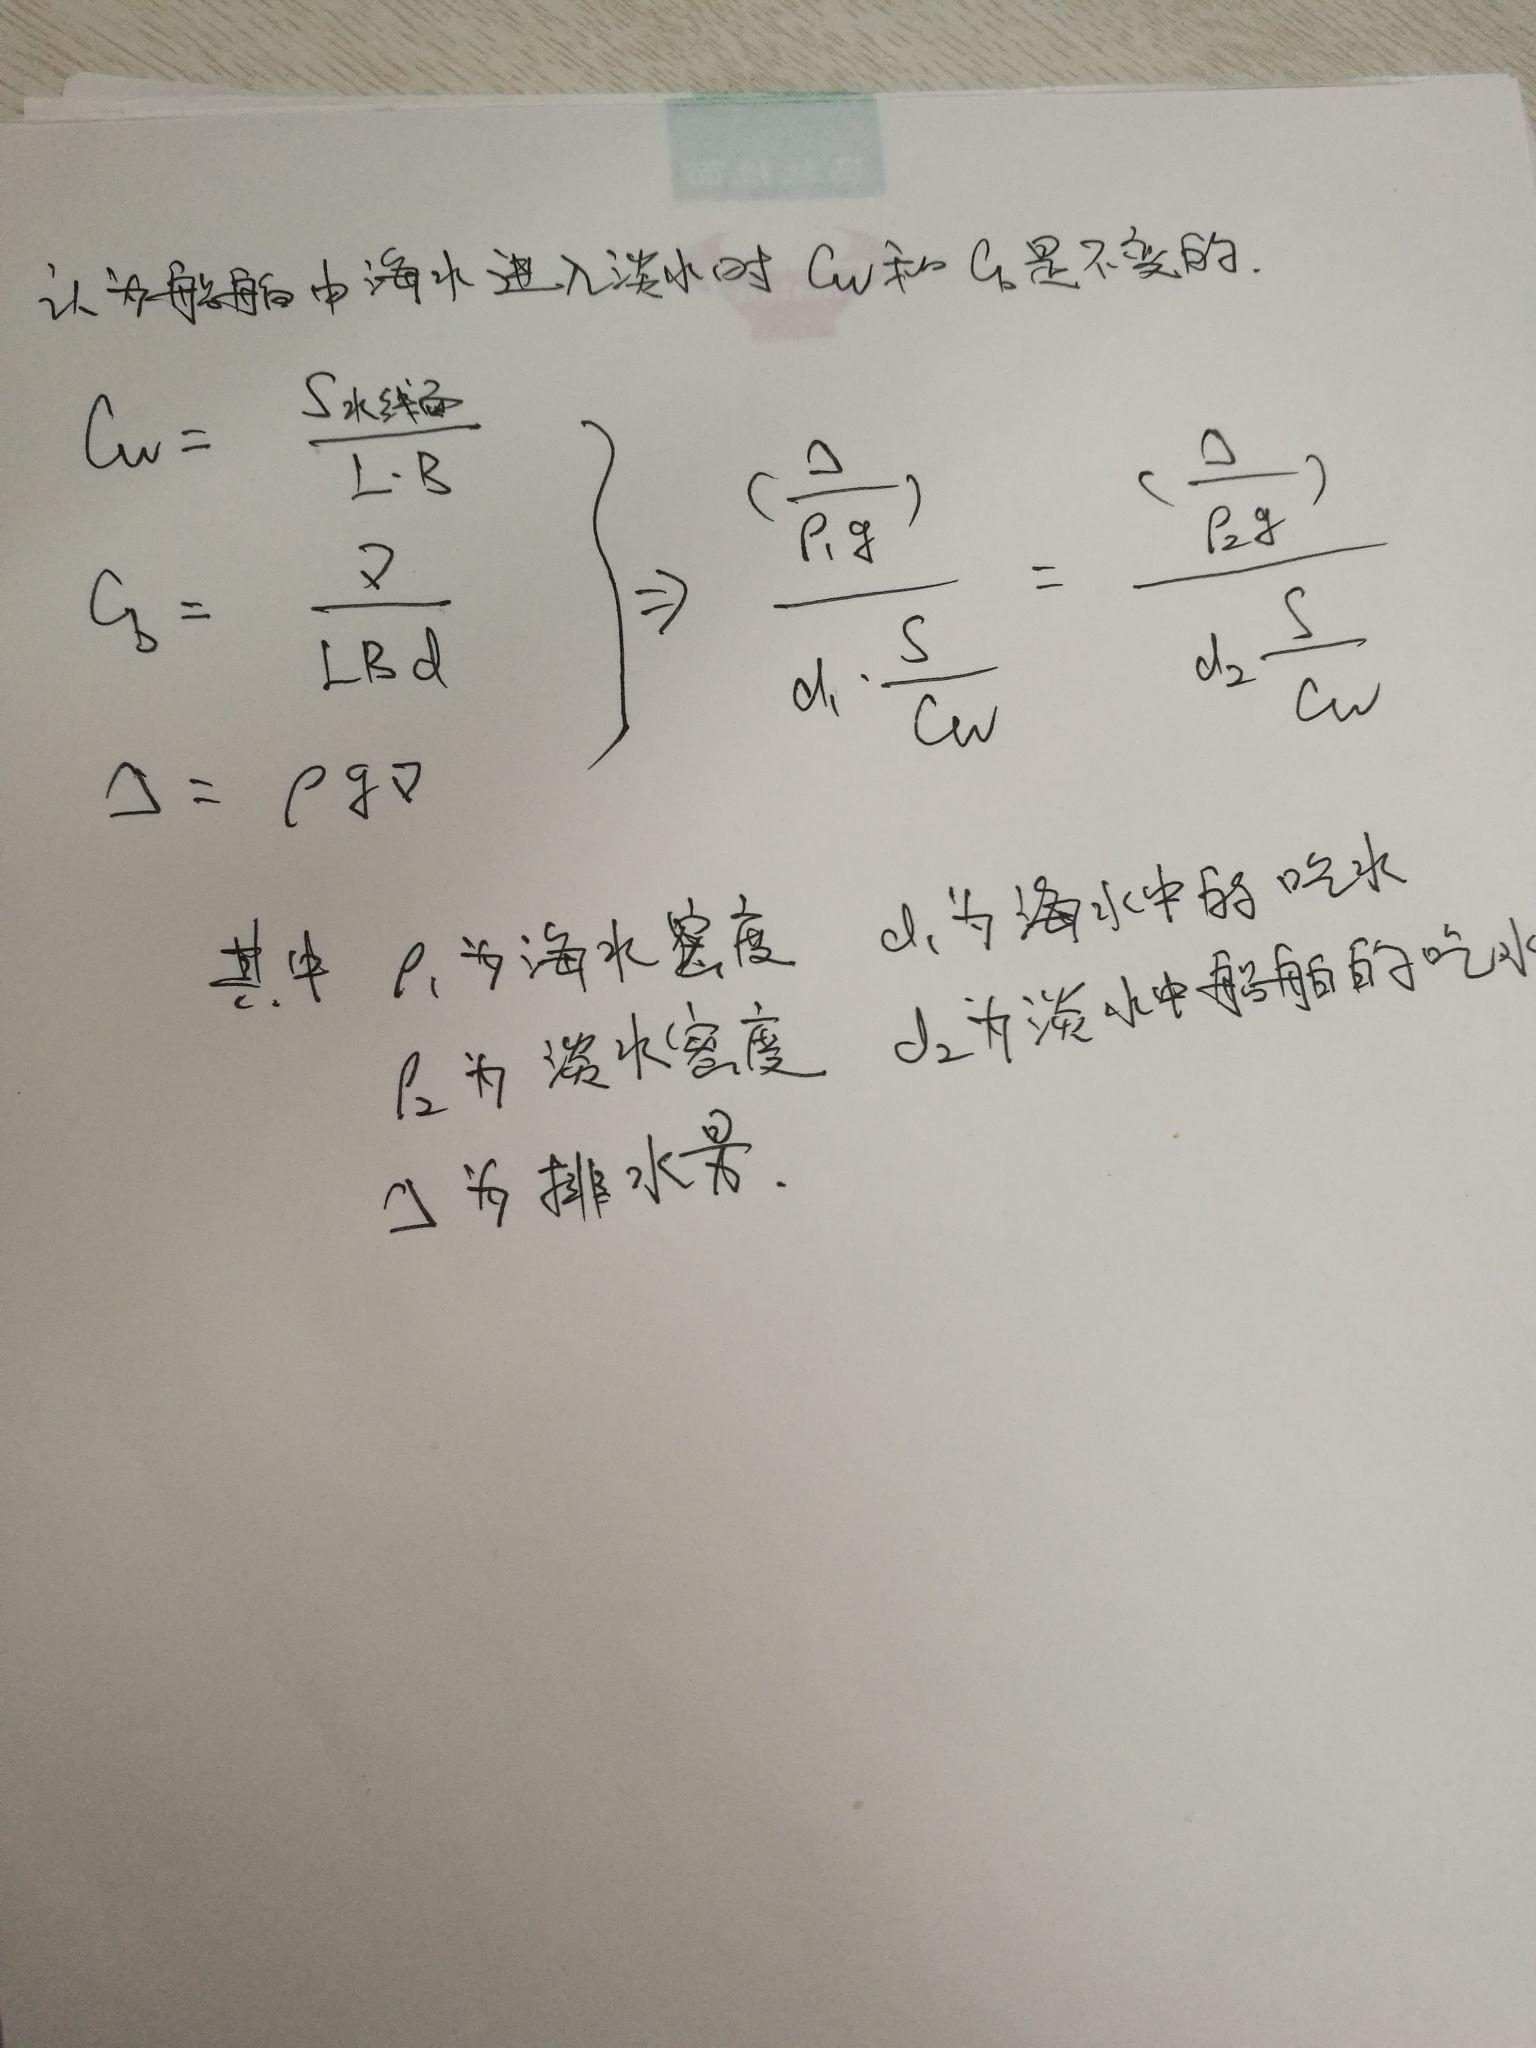 认为船舶由海水进入淡水时 Cw和 Cb是不变的.
Cw = S水线面 / L·B
Cb = ∇ / LBd
Δ = ρg∇
⇒ (Δ/ρ₁g) / (d₁·S/Cw) = (Δ/ρ₂g) / (d₂ S/Cw)
其中 ρ₁为海水密度 d₁为海水中的吃水
ρ₂为淡水密度 d₂为淡水中船舶的吃水
Δ为排水量.